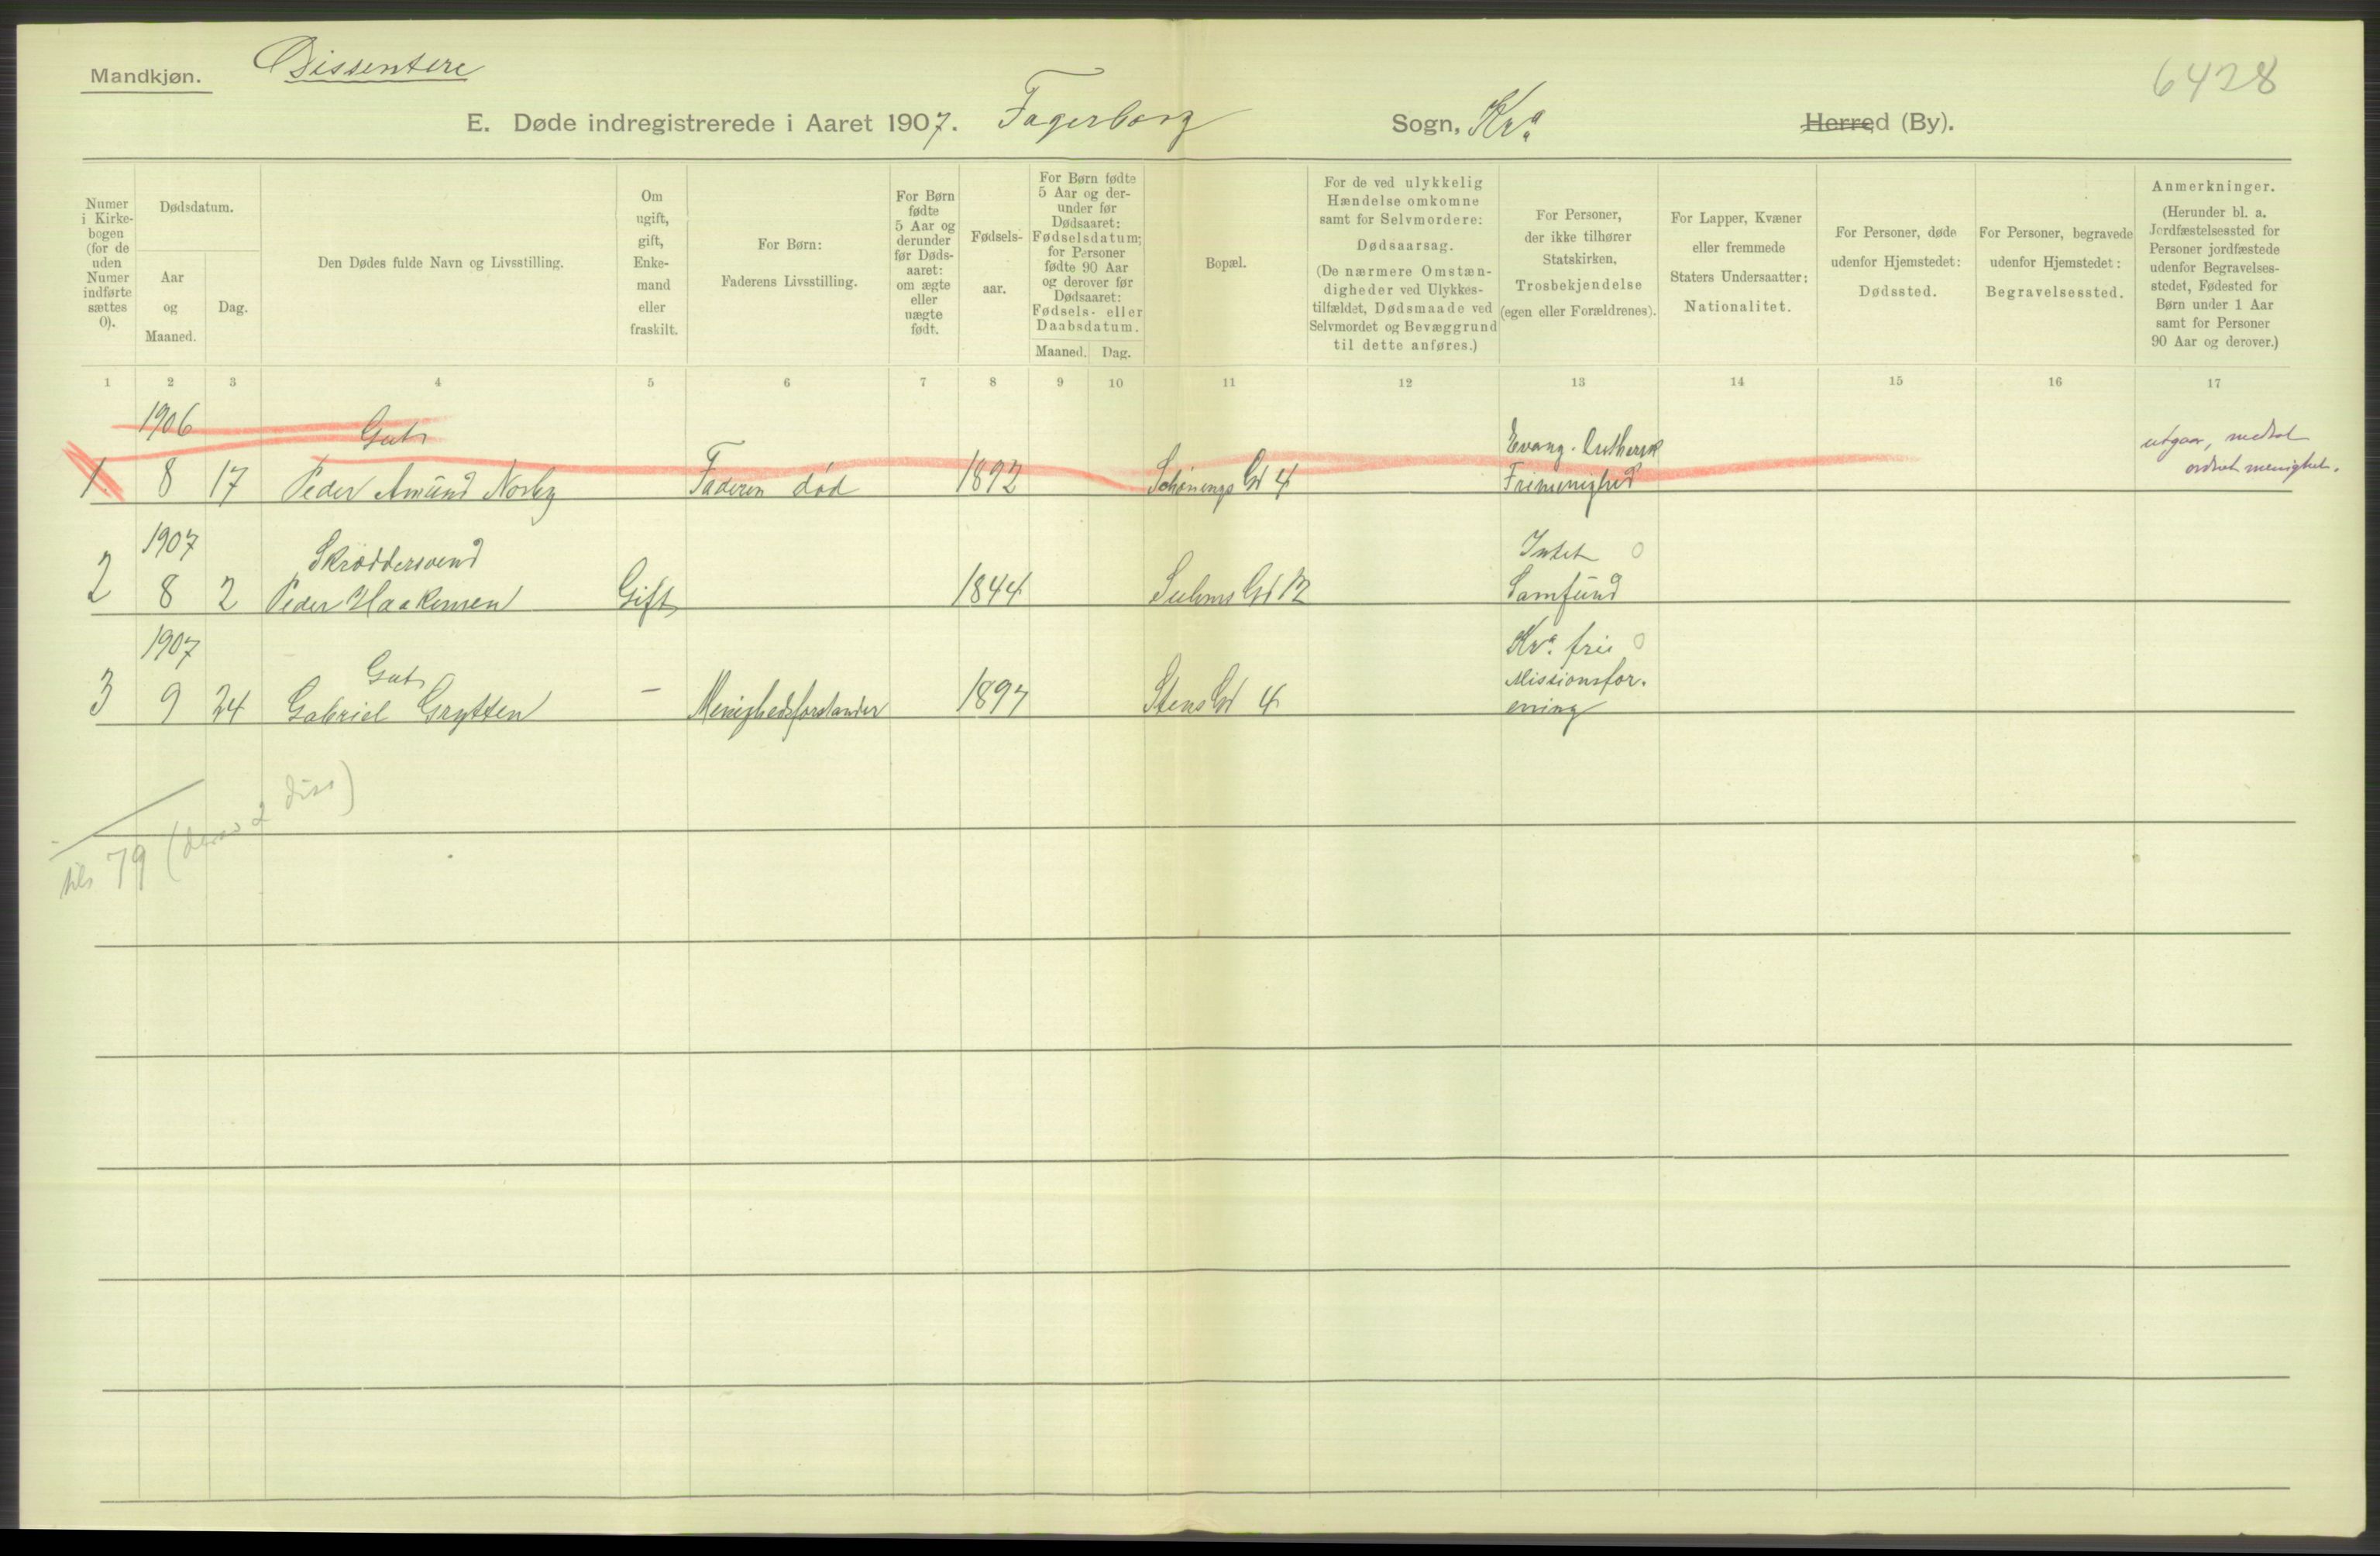 Mandkjøn.
Dissentere
6428
E. Døde indregistrerede i Aaret 1907. Fagerborg Sogn, Kra. Herred (By).
Numer
i Kirke-
bogen
(for de
uden
Numer
indførte
sættes
0).
Dødsdatum.
Aar
og
Maaned.
Dag.
Den Dødes fulde Navn og Livsstilling.
Om
ugift,
gift,
Enke-
mand
eller
fraskilt.
For Børn:
Faderens Livsstilling.
For Børn
fødte
5 Aar og
derunder
før Døds-
aaret:
om ægte
eller
uægte
født.
Fødsels-
aar.
For Børn fødte
5 Aar og der-
under før
Dødsaaret:
Fødselsdatum;
for Personer
fødte 90 Aar
og derover før
Dødsaaret:
Fødsels- eller
Daabsdatum.
Maaned. Dag.
Bopæl.
For de ved ulykkelig
Hændelse omkomne
samt for Selvmordere:
Dødsaarsag.
(De nærmere Omstæn-
digheder ved Ulykkes-
tilfældet, Dødsmaade ved
Selvmordet og Bevæggrund
til dette anføres.)
For Personer,
der ikke tilhører
Statskirken,
Trosbekjendelse
(egen eller Forældrenes).
For Lapper, Kvæner
eller fremmede
Staters Undersaatter:
Nationalitet.
For Personer, døde
udenfor Hjemstedet:
Dødssted.
For Personer, begravede
udenfor Hjemstedet:
Begravelsessted.
Anmerkninger.
(Herunder bl. a.
Jordfæstelsessted for
Personer jordfæstede
udenfor Begravelses-
stedet, Fødested for
Børn under 1 Aar
samt for Personer
90 Aar og derover.)
1 2 3 4 5 6 7 8 9 10 11 12 13 14 15 16 17
1906 Gut Evang. luthersk utgaar,
1 8 17 Peder Amund Norby Faderen død 1892 Schønings Gd 4 Frimenighed menighet.
1907 Skræddersvend Intet 0
2 8 2 Peder Haakensen Gift 1844 Suhms Gd 12 Samfund
1907 Kra. frie 0
Gut Missionsfor.
3 9 24 Gabriel Grytten - Menighedsforstander 1897 Stens Gd 4 ening
tils 79 (deraf 2 diss)